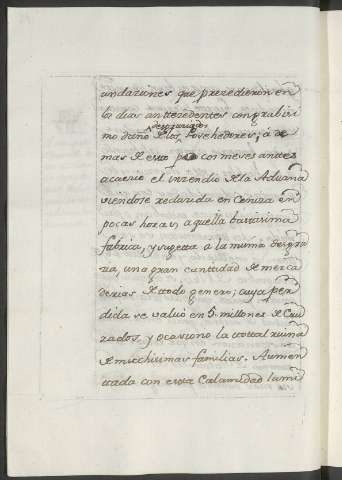 undaziones que prezedieron en
los dias anttezedentes con grabisi
mo daño de los desgraziados Posehedores; â de
mas de esto pocos meses anttes
acaezio el inzendio de la Aduana
viendose reduzida en Ceniza en
pocas horas, aquella bastisima
fabrica, y sugetta â la misma desgra
zia, una gran canttidad de merca
derias de ttodo genero; cuya per
dida se valuò en 5. millones de Cru
zados, y ocasiono la ttottal ruina
de mucchisimas familias. Aumen
ttada con estta Calamidad la mi